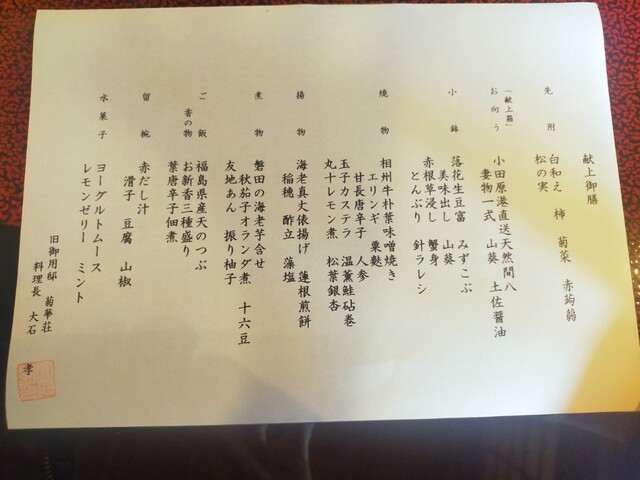 献上御膳
先附 白和え 柿 菊菜 赤蒟蒻
松の実
「献上箱」
お向う 小田原港直送天然間八
妻物一式 山葵 土佐醤油
小鉢 落花生豆富 みずこぶ
美味出し 山葵 蟹身
赤根草浸し 蟹身
とんぶり 針ラレシ
焼物 相州牛朴葉味噌焼き
エリンギ 粟麩
甘長唐辛子 人参
玉子カステラ 温薫鮭砧巻
丸十レモン煮 松葉銀杏
揚物 海老真丈俵揚げ 蓮根煎餅
稲穂 酢立 藻塩
煮物 磐田の海老芋含せ
秋茄子オランダ煮 十六豆
友地あん 振り柚子
ご飯 福島県産天のつぶ
香の物 お新香三種盛り
葉唐辛子佃煮
留椀 赤だし汁
滑子 豆腐 山椒
水菓子 ヨーグルトムース
レモンゼリー ミント
旧御用邸 菊華荘
料理長 大石 孝